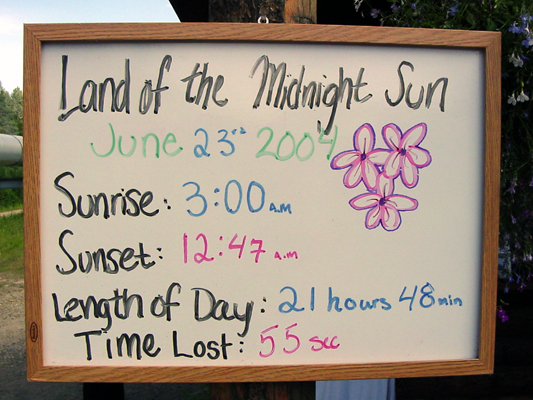 Land of the Midnight Sun
June 23rd 2004
Sunrise: 3:00 A.M
Sunset: 12:47 a.m
Length of Day: 21 hours 48 min
Time Lost: 55 sec